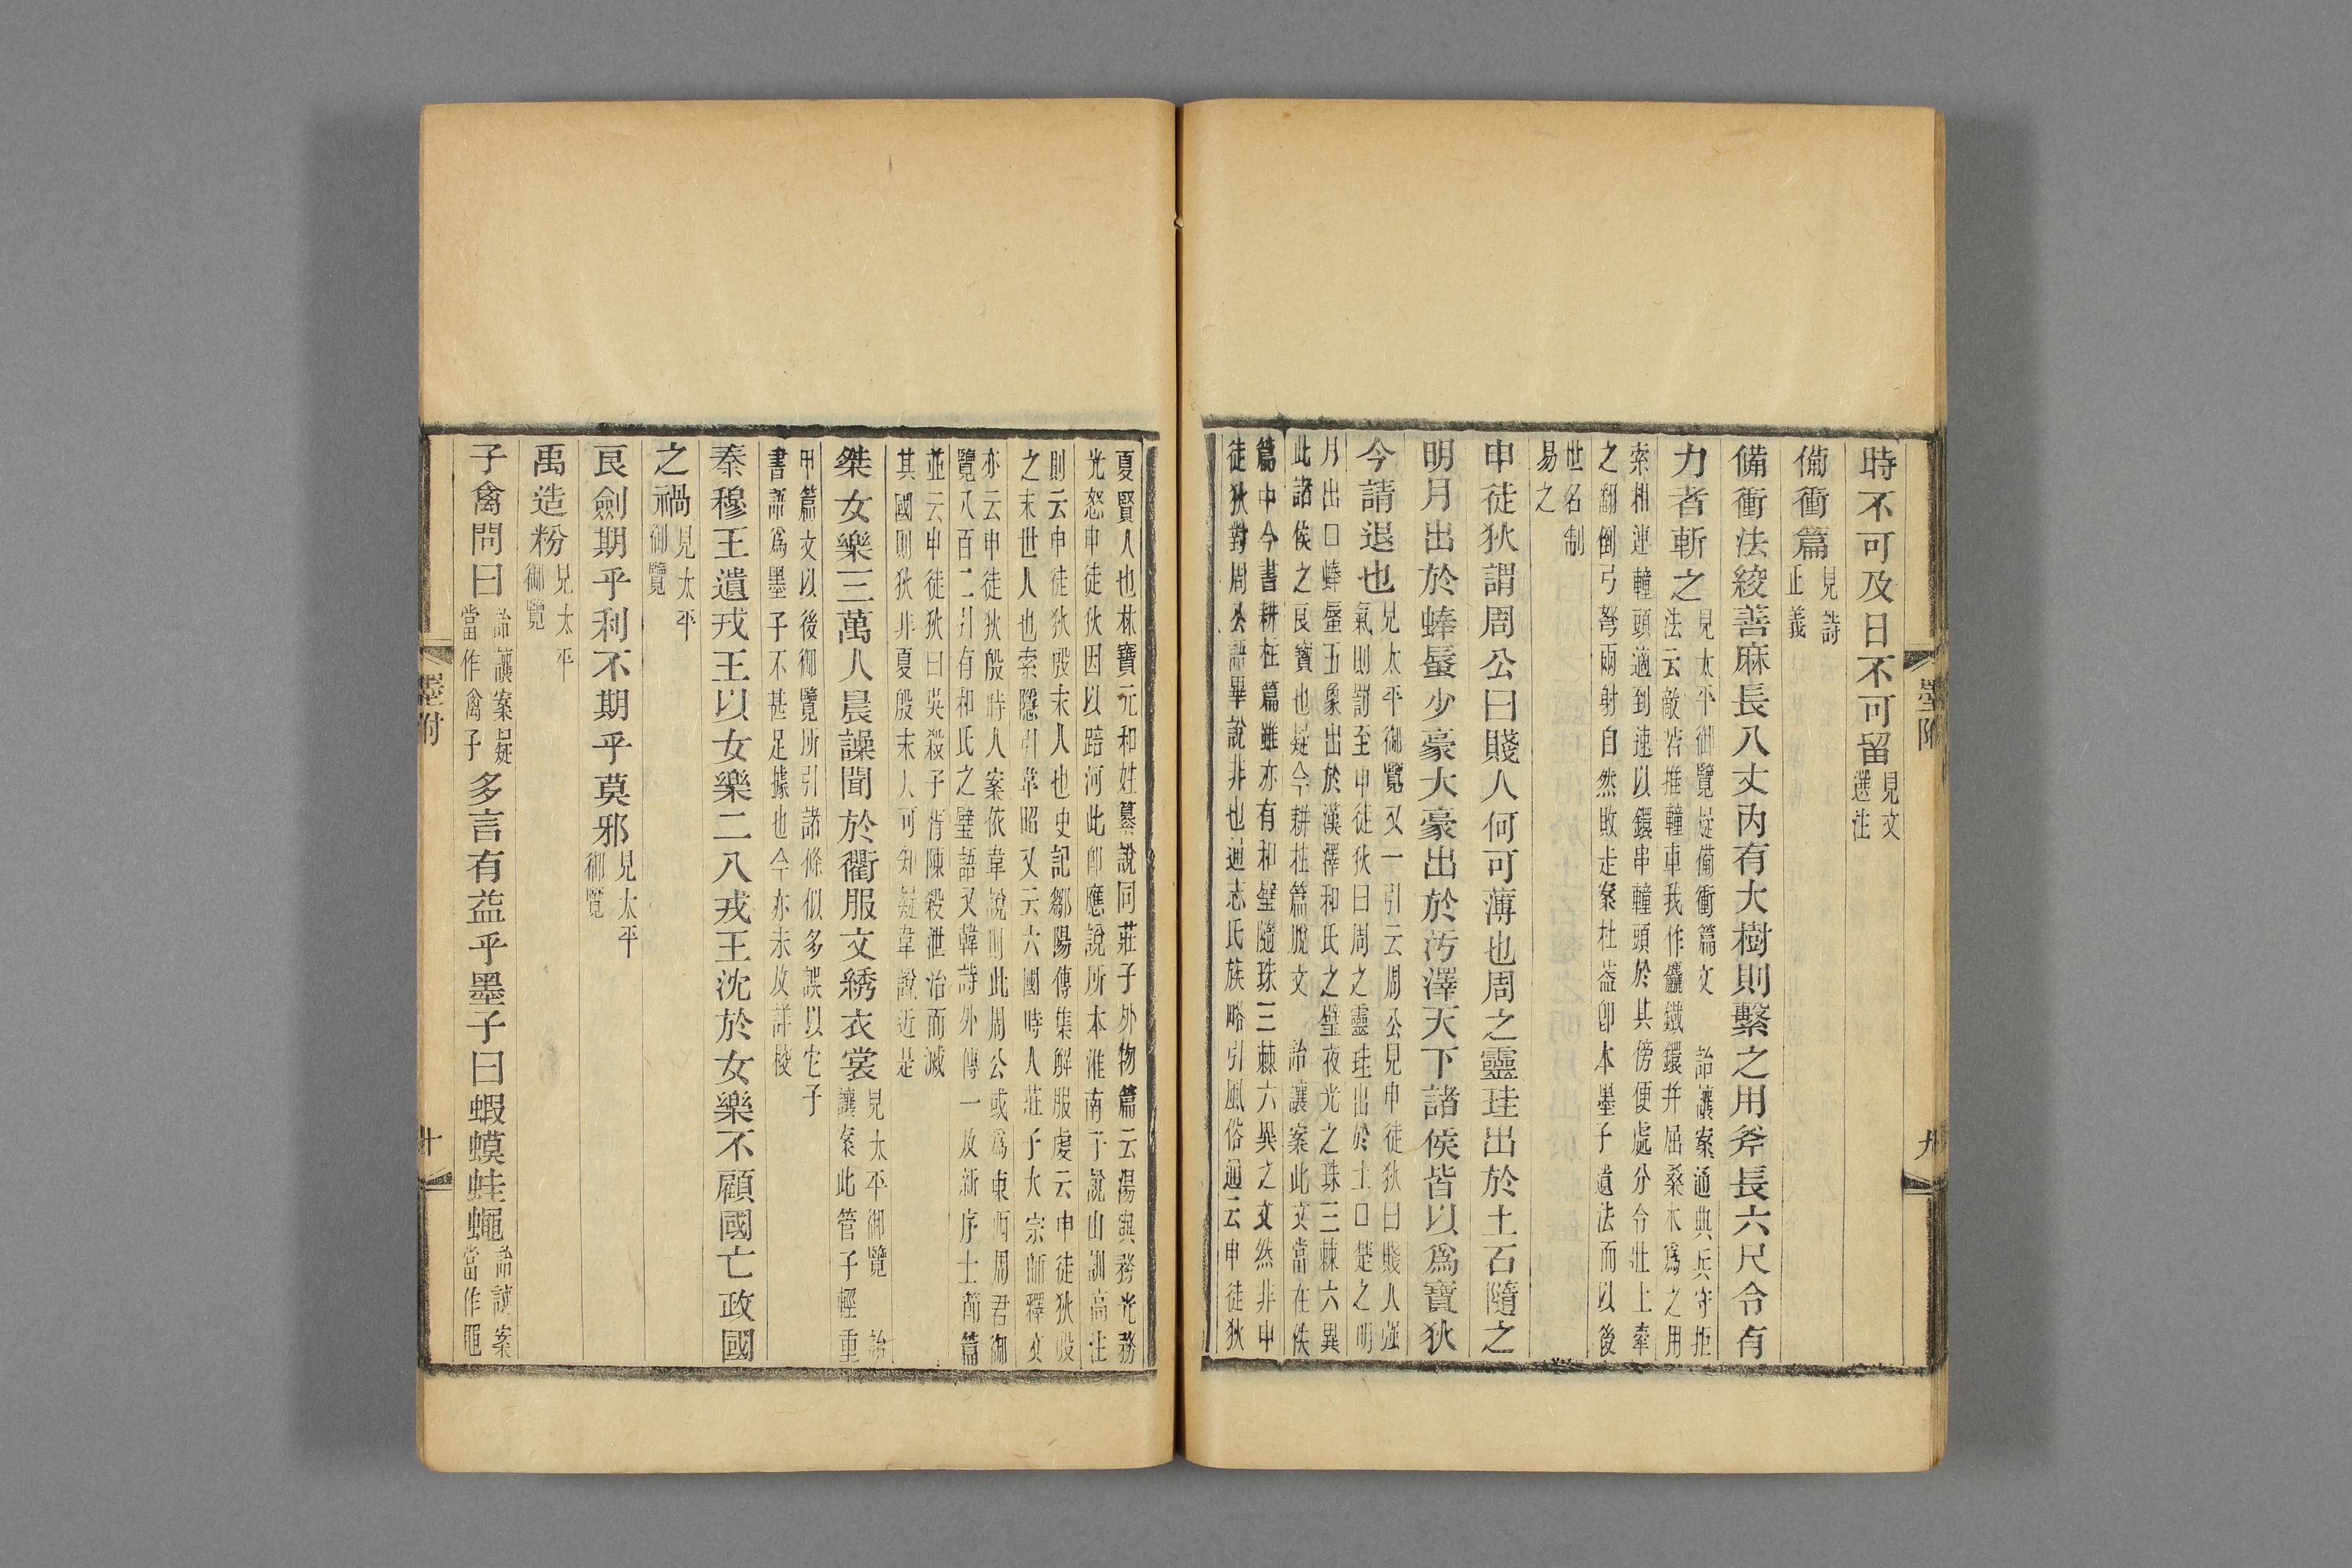 時不可及日不可留見文
選注
備衝篇見詩
正義
備衝法絞善麻長八丈内有大樹則繫之用斧長六尺令有
力者斬之見太平御覽疑備衝篇文 詒讓案通典兵守拒
法云敵若推轒車我作麤鐵鐶并屈桑木爲之用
索相連轒頭適到速以鐶串轒頭於其傍便處分令壯士牽
之翻倒弓弩兩射自然敗走案杜葢卽本墨子遺法而以後
世名制
易之
申徒狄謂周公曰賤人何可薄也周之靈珪出於土石隨之
明月出於蜯蜃少豪大豪出於汚澤天下諸侯皆以爲寶狄
今請退也見太平御覽又一引云周公見申徒狄曰賤人强
氣則罰至申徒狄曰周之靈珪出於土口楚之明
月出口蜯蜃五象出於漢澤和氏之璧夜光之珠三棘六異
此諸侯之良寶也疑今耕柱篇脫文 詒讓案此文當在佚
篇中今書耕柱篇雖亦有和璧隨珠三棘六異之文然非申
徒狄對周公語畢說非也通志氏族略引風俗通云申徒狄
墨附 九
夏賢人也林寶元和姓纂說同莊子外物篇云湯與務光務
光怒申徒狄因以踣河此卽應說所本淮南子說山訓高注
則云申徒狄殷末人也史記鄒陽傳集解服虔云申徒狄殷
之末世人也索隱引韋昭又云六國時人莊子大宗師釋文
亦云申徒狄殷時人案依韋說則此周公或爲東西周君御
覽八百二引有和氏之璧語又韓詩外傳一及新序士節篇
並云申徒狄曰吳殺子胥陳殺泄治而滅
其國則狄非夏殷末人可知疑韋說近是
桀女樂三萬人晨譟聞於衢服文綉衣裳見太平御覽 詒
讓案此管子輕重
甲篇文以後御覽所引諸條似多誤以它子
書語爲墨子不甚足據也今亦未及詳校
秦穆王遺戎王以女樂二八戎王沈於女樂不顧國亡政國
之禍見太平
御覽
良劍期乎利不期乎莫邪見太平
御覽
禹造粉見太平
御覽
子禽問曰詒讓案疑
當作禽子多言有益乎墨子曰蝦蟆蛙蠅詒讓案
當作黽
墨附 十